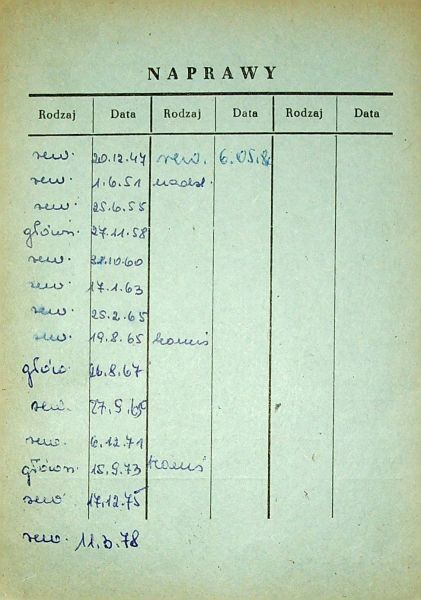 NAPRAWY
Rodzaj Data Rodzaj Data Rodzaj Data
rew. 20.12.47 rew. 6.05.8
rew. 1.6.51 nadzł.
rew. 25.6.55
główn. 27.11.58
rew. 31.10.60
rew. 17.1.63
rew. 25.2.65
rew. 19.8.65
głów. 26.8.67
rew. 27.9.69
rew. 6.12.71
główn. 15.9.73
rew. 17.12.75
rew. 11.3.78